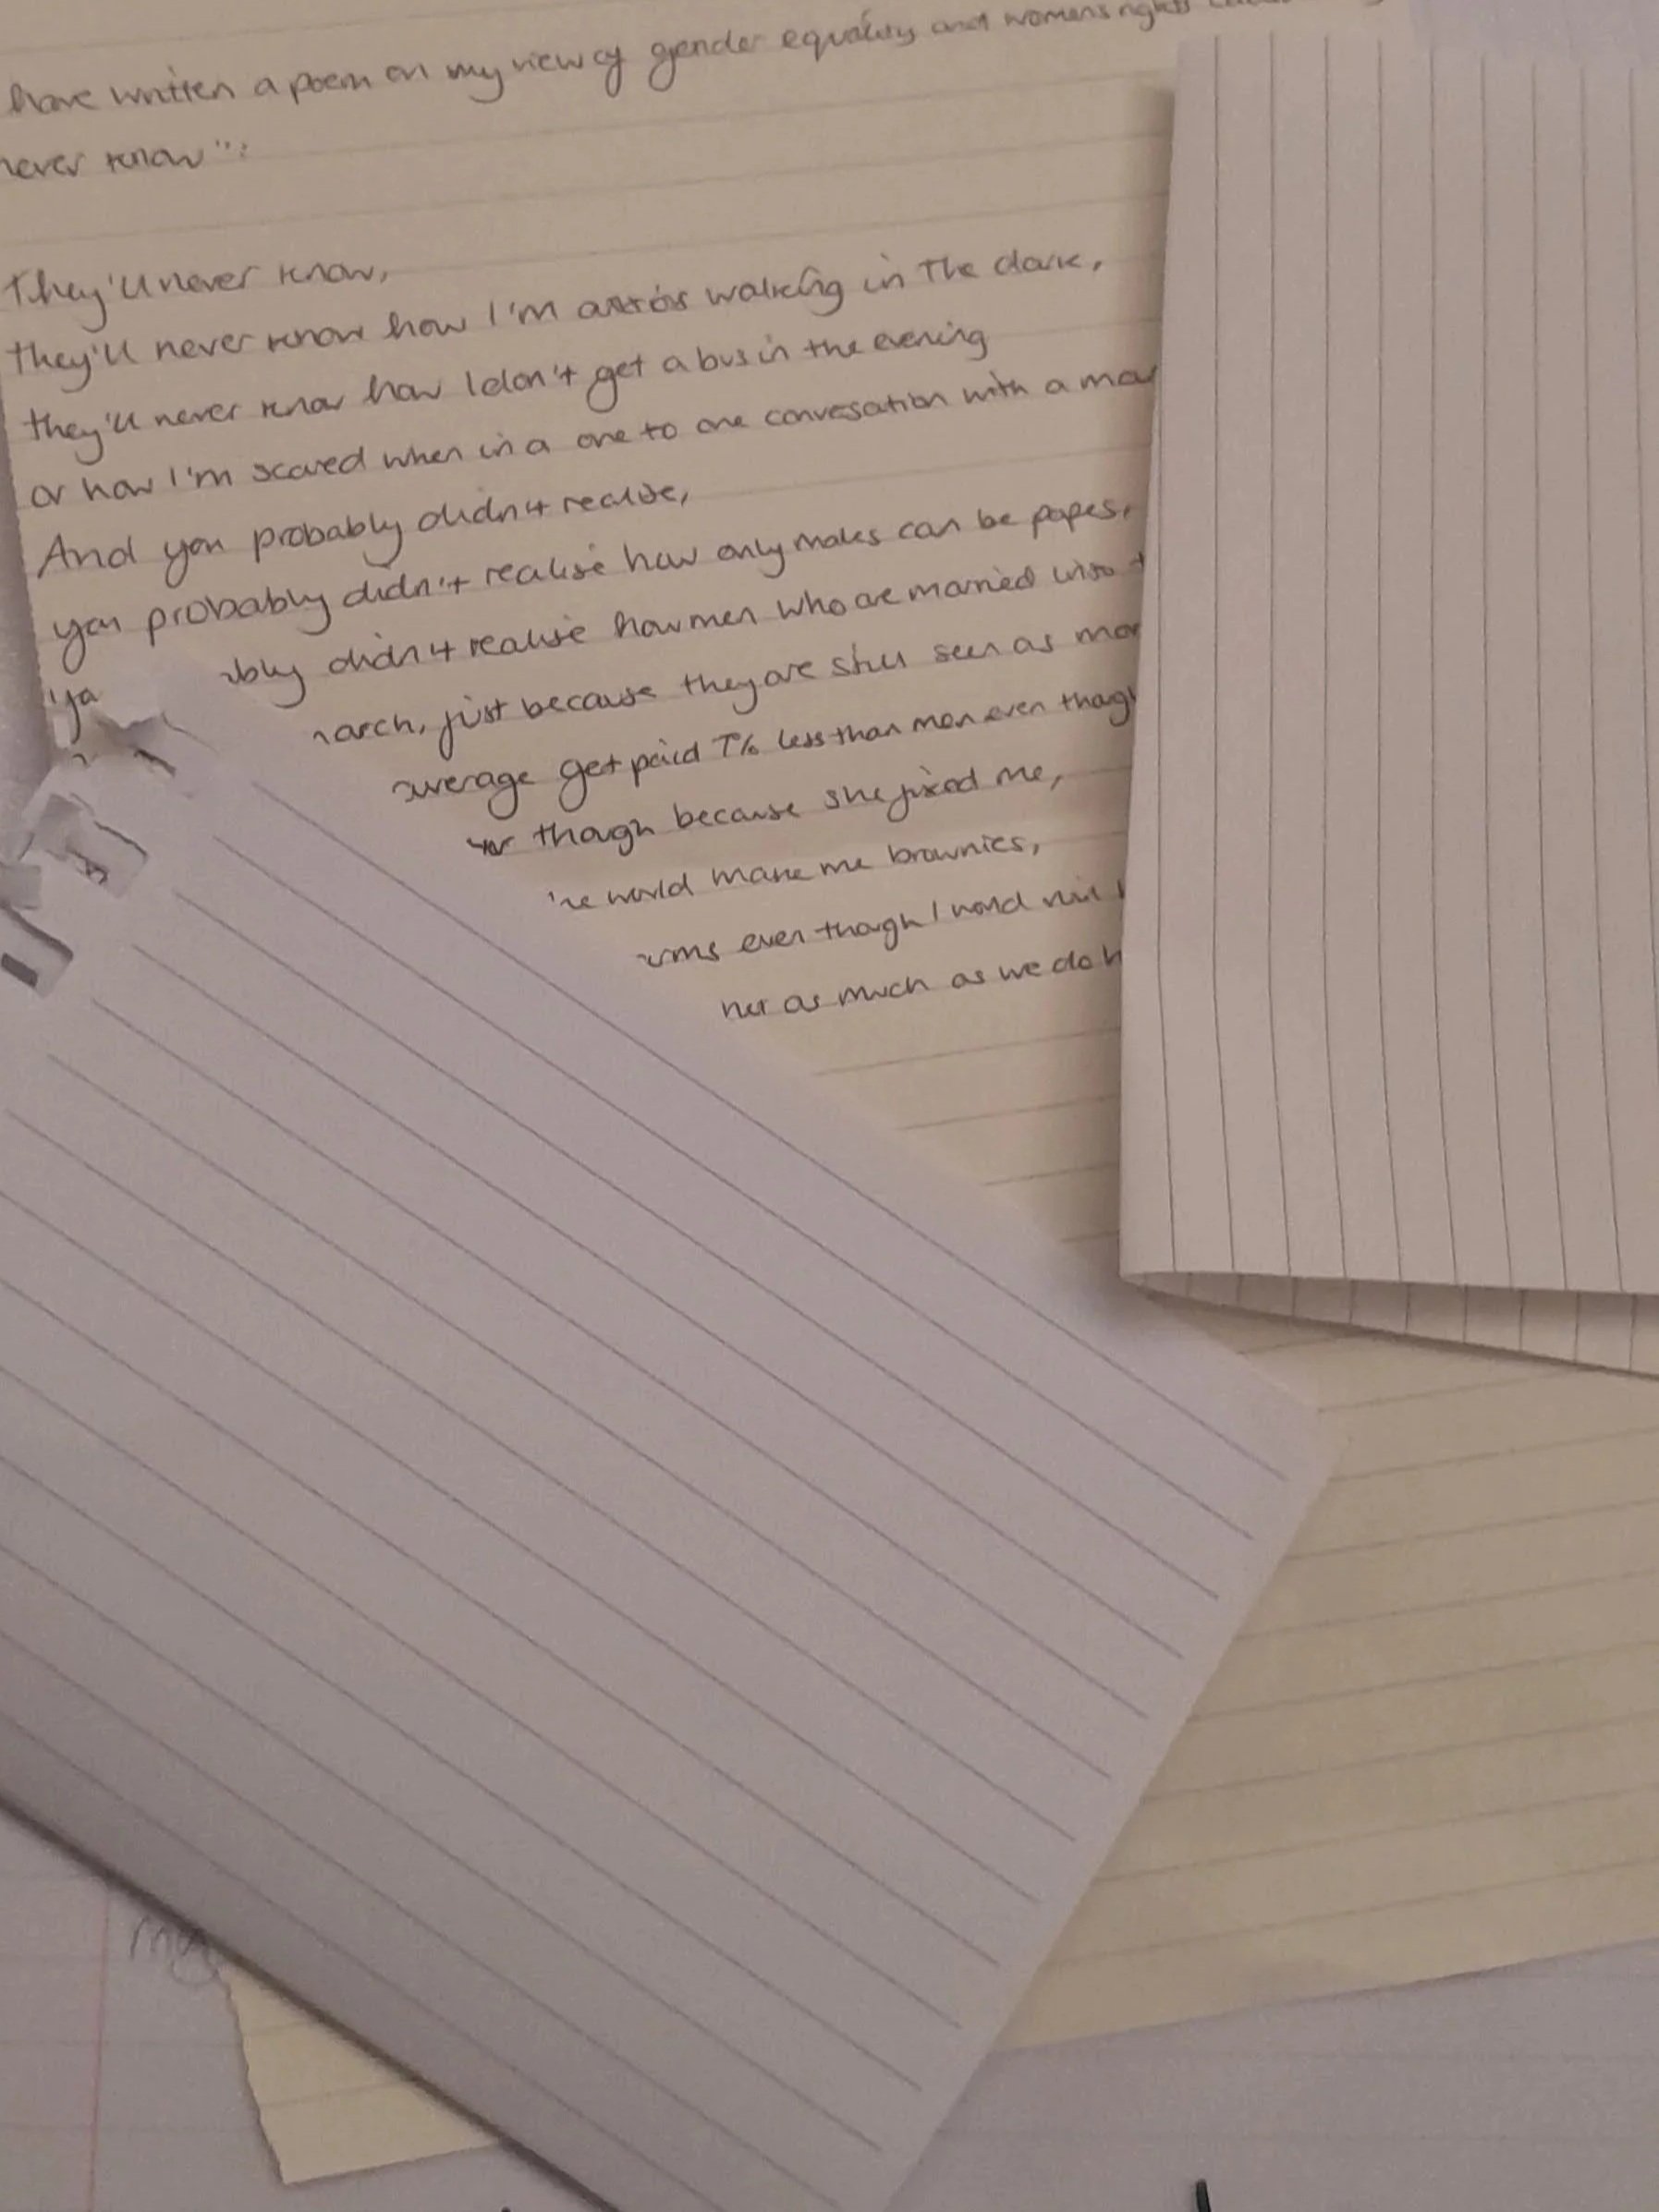 have written a poem on my view of gender equality and womens rights
never know":
They'll never know,
they'll never know how I'm anxious walking in The dark,
they'll never know how I don't get a bus in the evening
or how I'm scared when in a one to one convesation with a
And you probably didn't realise,
you probably didn't realise how only males can be popes,
didn't realise how men who are married into
just because they are still seen as
average get paid 7% less than men even
though because she fixed me,
would make me brownies,
even though I would ruin
her as much as we do
my